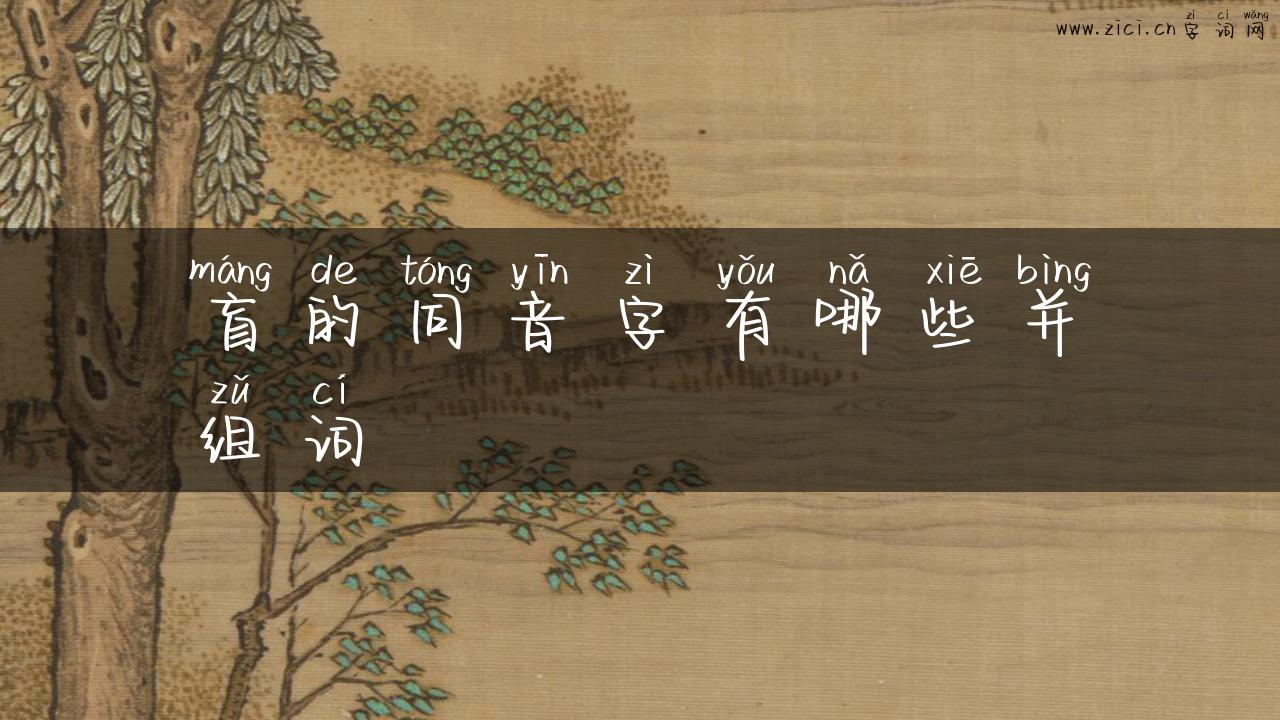 zì cí wǎng
www.zici.cn 字词网
máng de tóng yīn zì yǒu nǎ xiē bìng
盲的同音字有哪些并
zǔ cí
组词